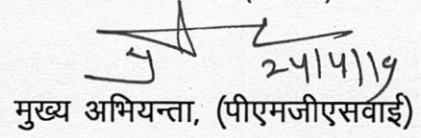 24/4/19
मुख्य अभियन्ता, (पीएमजीएसवाई)